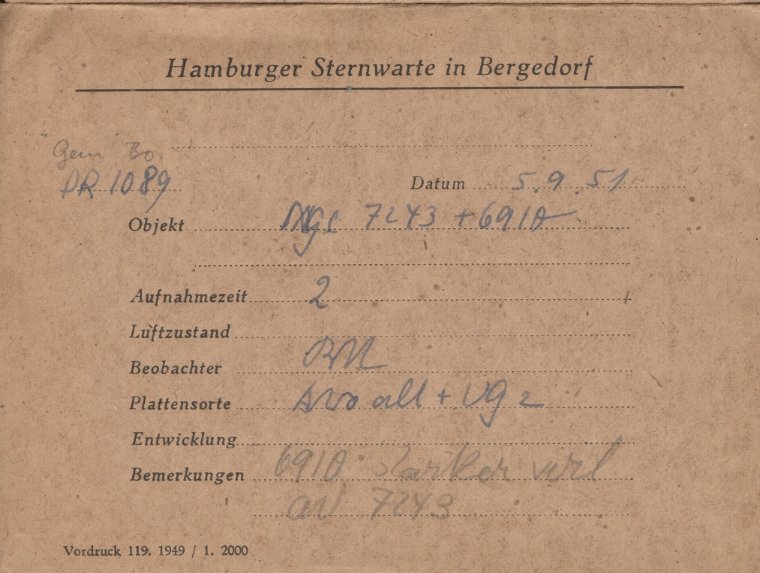 Hamburger Sternwarte in Bergedorf
Gem Bo.
DR 1089
Datum 5.9.51
Objekt Ngc 7243 + 6910
Aufnahmezeit 2
Luftzustand
Beobachter
Plattensorte + VG 2
Entwicklung
Bemerkungen 6910 starker
7243
Vordruck 119. 1949 / 1. 2000